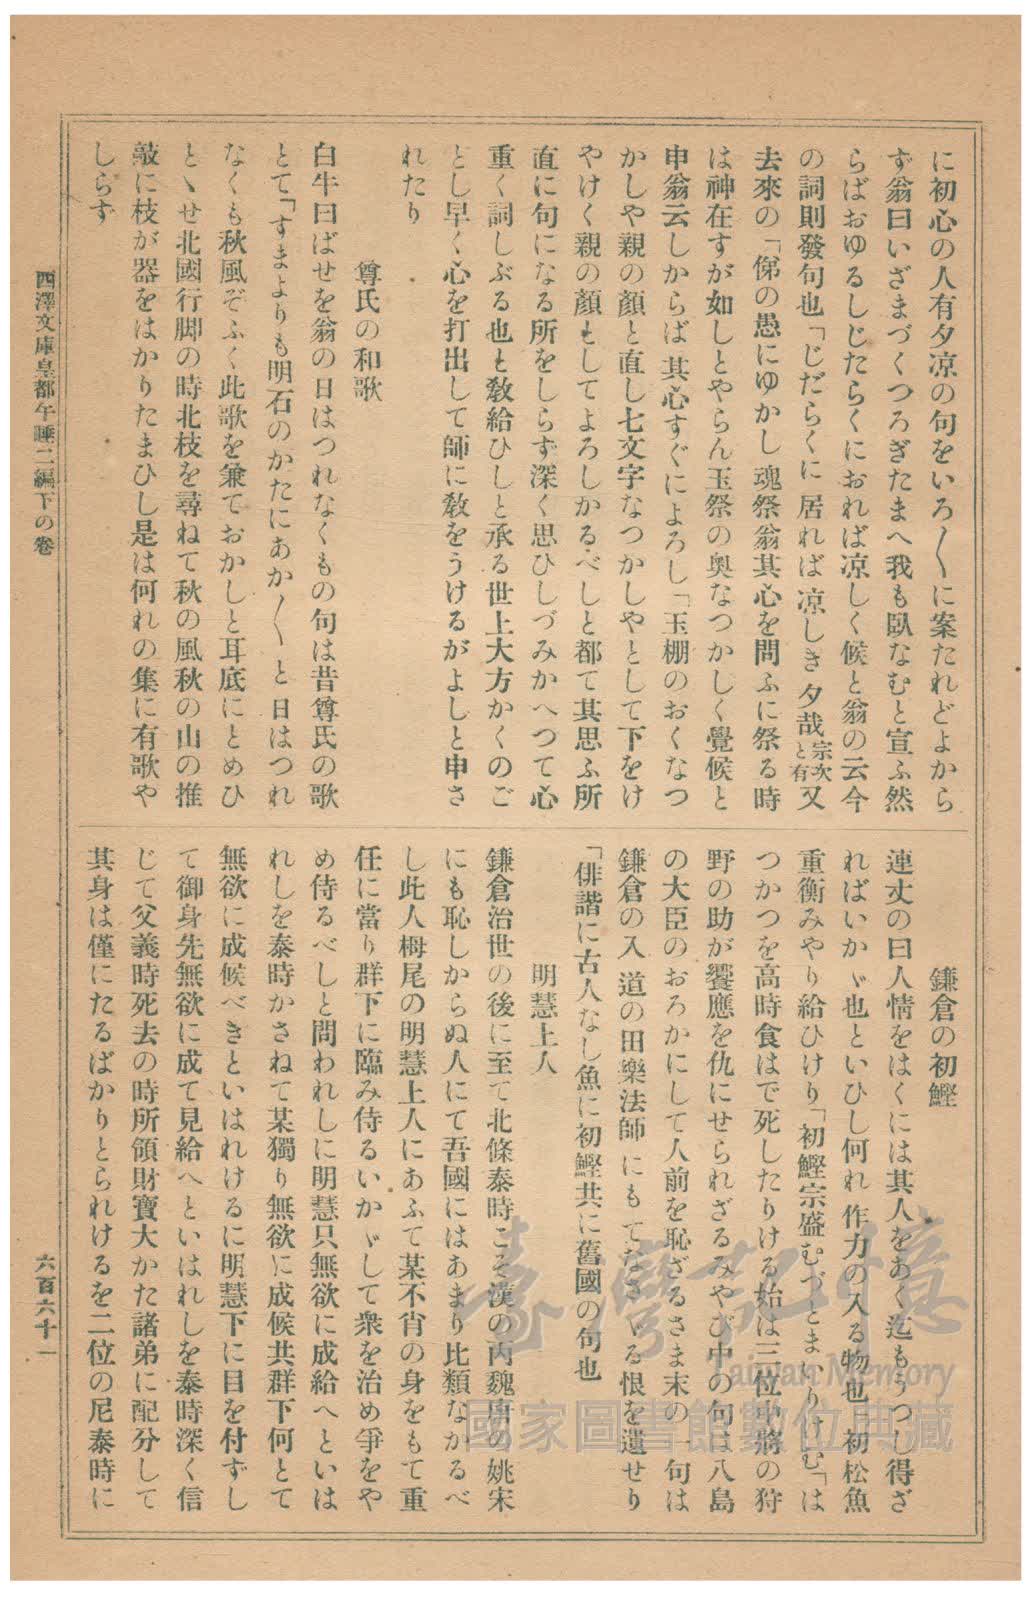 に初心の人有夕凉の句をいろ〱に案たれどよから
ず翁曰いざまづくつろぎたまへ我も臥なむと宣ふ然
らばおゆるしじたらくにおれば凉しく候と翁の云今
の詞則發句也「じだらくに居れば凉しき夕哉宗次と有又
去來の「俤の愚にゆかし魂祭翁其心を問ふに祭る時
は神在すが如しとやらん玉祭の奥なつかしく覺候と
申翁云しからば其心すぐによろし「玉棚のおくなつ
かしや親の顔と直し七文字なつかしやとして下をけ
やけく親の顔としてよろしかるべしと都て其思ふ所
直に句になる所をしらず深く思ひしづみかへつて心
重く詞しぶる也と敎給ひしと承る世上大方かくのご
とし早く心を打出して師に敎をうけるがよしと申さ
れたり
尊氏の和歌
白牛曰ばせを翁の日はつれなくもの句は昔尊氏の歌
とて「すまよりも明石のかたにあか〱と日はつれ
なくも秋風ぞふく此歌を兼ておかしと耳底にとめひ
とゝせ北國行脚の時北枝を尋ねて秋の風秋の山の推
敲に枝が器をはかりたまひし是は何れの集に有歌や
しらず
鎌倉の初鰹
連丈の曰人情をはくには其人をあく迄もうつし得ざ
ればいかゞ也といひし何れ作力の入る物也「初松魚
重衡みやり給ひけり「初鰹宗盛むづとまいりけむ「は
つかつを高時食はで死したりける始は三位中將の狩
野の助が饗應を仇にせられざるみやび中の句は八島
の大臣のおろかにして人前を恥ざるさま末の一句は
鎌倉の入道の田樂法師にもてなさゝる恨を遺せり
「俳諧に古人なし魚に初鰹共に舊國の句也
明慧上人
鎌倉治世の後に至て北條泰時こそ漢の丙魏唐の姚宋
にも恥しからぬ人にて吾國にはあまり比類なかるべ
し此人栂尾の明慧上人にあふて某不肖の身をもて重
任に當り群下に臨み侍るいかゞして衆を治め爭をや
め侍るべしと問われしに明慧只無欲に成給へといは
れしを泰時かさねて某獨り無欲に成候共群下何とて
無欲に成候べきといはれけるに明慧下に目を付ずし
て御身先無欲に成て見給へといはれしを泰時深く信
じて父義時死去の時所領財寶大かた諸弟に配分して
其身は僅にたるばかりとられけるを二位の尼泰時に
四澤文庫皇都午睡二編下の卷
六百六十一
臺灣記憶
Taiwan Memory
國家圖書館數位典藏